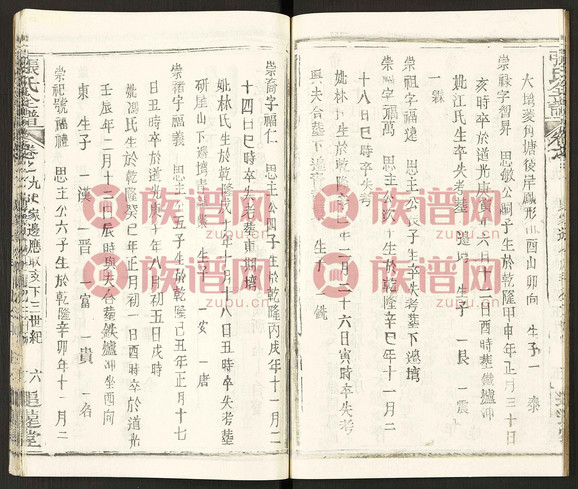 張氏全譜
大塅菱角塘後岸鳳形 酉山卯向 生子一 泰
崇祿字智昇 思敏公嗣子生於乾隆甲申年正月三十日
亥時卒於道光庚寅 六日十二日酉時塟儀爐冲
妣江氏生卒失考塟 邉墳 生子一艮 一震
一
崇祖字福達 思主公長子生卒失考塟下邉墳
崇 字福 思主公 子生於乾隆辛巳年十一月二
十八日 時卒失考
妣林 生於 年二月二十六日寅時卒失考
與夫合塟下邉墳 生子一
崇裔字福仁 思主公四子生於乾隆丙戌年十一月二
十四日巳時卒失考塟東 墳
妣林氏生於乾隆戊 年十月 八日丑時卒失考塟
研崖山下邉墳 生 一安 一唐
崇禧字福義 思主 五子生於乾隆己丑年正月十七
日丑時卒於道光庚 年八月初五日戌時
妣馮氏生於乾隆癸巳年正月初一日 時卒於道光
壬辰年二月十三日辰時與夫合塟鉄爐冲坐西向
東 生子一漢 一晋 一富 一貴 一名
崇祀號福禮 思主公六子生於乾隆辛卯年十一月二
張氏全譜
卷之九 家邊應 亥下三世紀
六
追遠堂
族谱网
zupu.cn
族谱网
zupu.cn
族谱网
zupu.cn
族谱网
zupu.cn